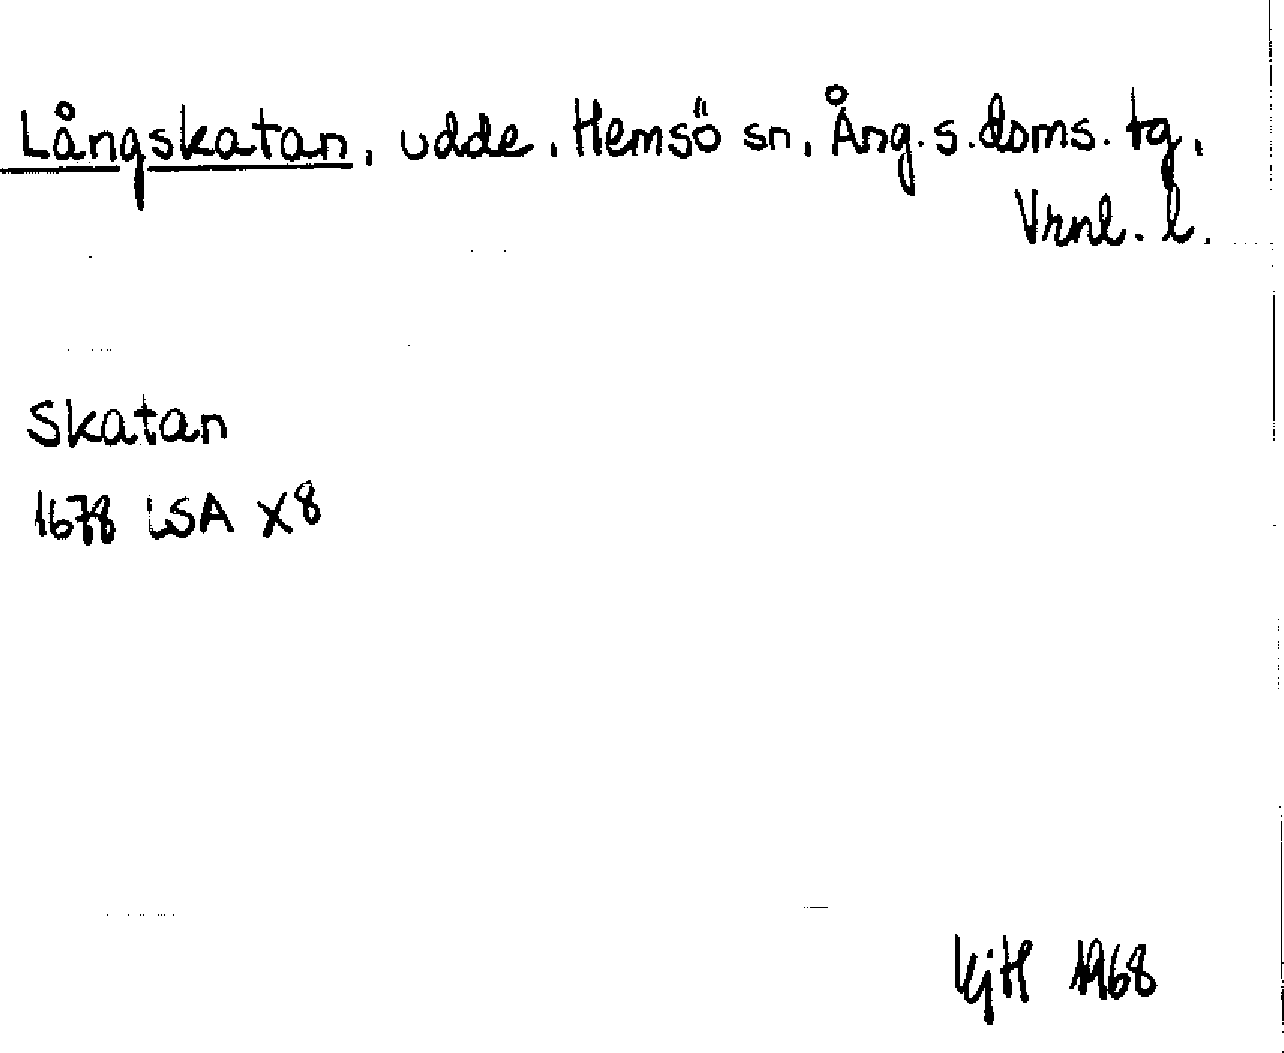 Långskatan, udde. Hemsö sn, Ång. s. doms. tg,
Vrnl. l.
Skatan
1678 LSA X8
KjH 1968